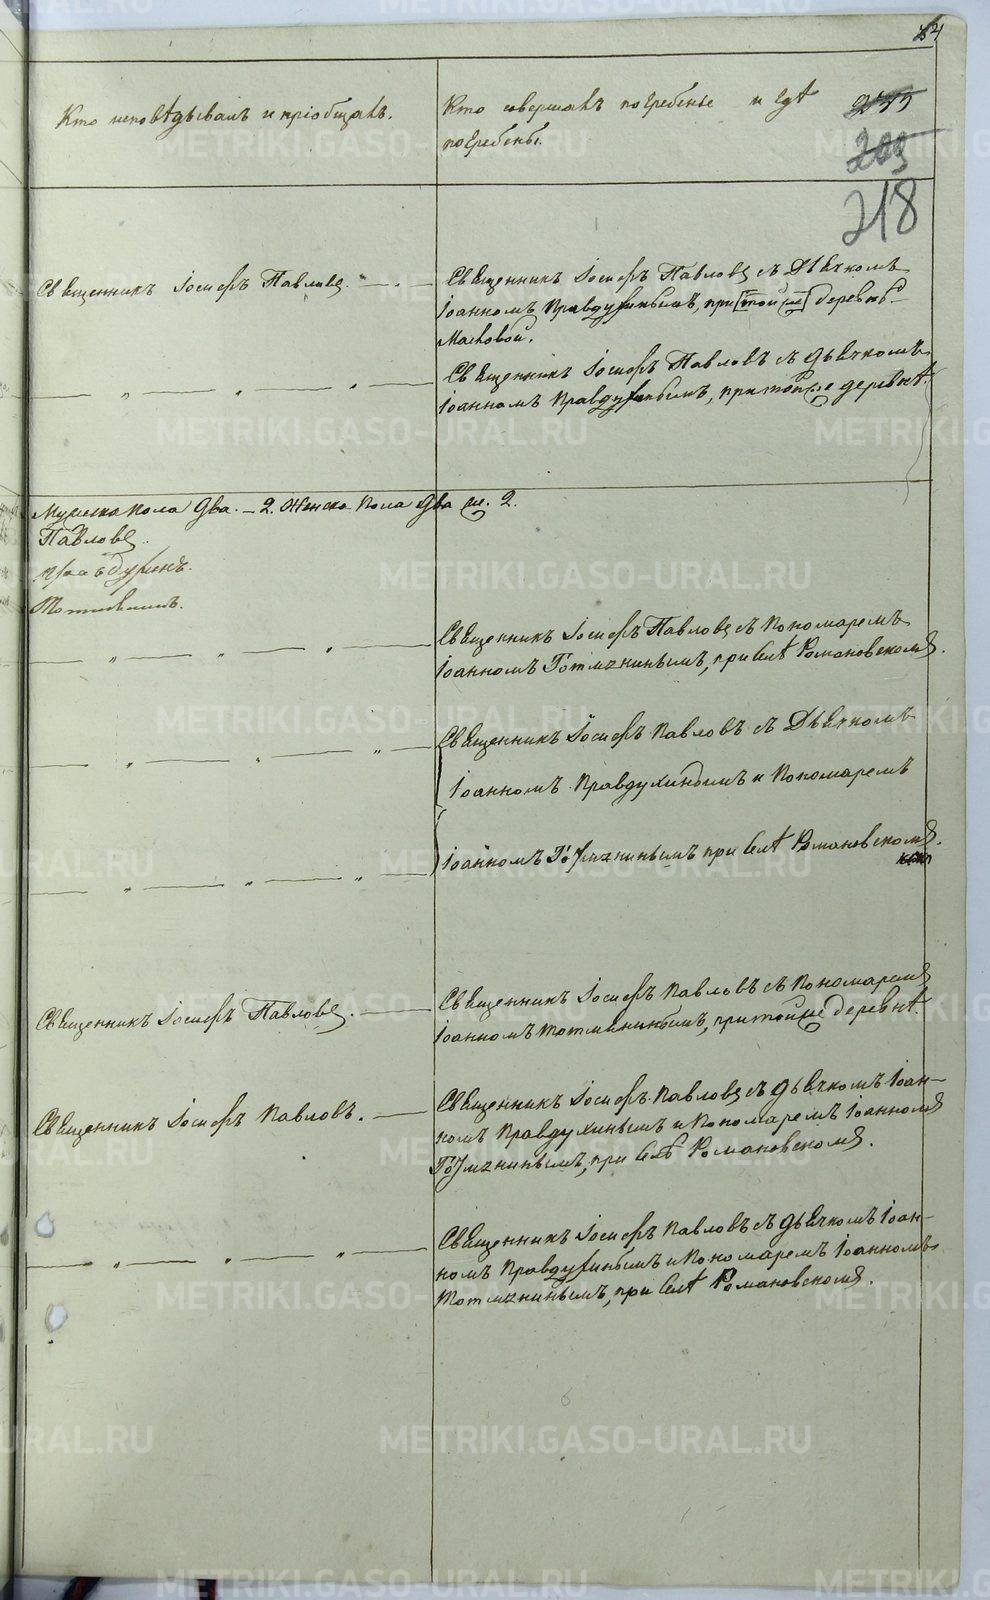 84
Кто исповѣдывалъ и пріобщалъ.
Кто совершалъ погребенье и гдѣ
погребены.
203
218
Священникъ Іосифъ Павловъ.
Священникъ Іосифъ Павловъ съ Дьячкомъ
Іоанномъ Правдухинымъ, при [той же] деревнѣ
Масловой.
Священникъ Іосифъ Павловъ съ дьячкомъ
Іоанномъ Правдухинымъ, при той же деревнѣ.
Мужеска пола два. – 2. Женска пола два же. 2.
Павловъ.
Правдухинъ.
Священникъ Іосифъ Павловъ съ Пономаремъ
Іоанномъ Тотмѧнинымъ, при селѣ Романовскомъ.
Священникъ Іосифъ Павловъ съ Дьячкомъ
Іоанномъ Правдухинымъ и Пономаремъ
Іоанномъ Тотмѧнинымъ при селѣ Романовскомъ.
Священникъ Іосифъ Павловъ.
Священникъ Іосифъ Павловъ съ Пономаремъ
Іоанномъ Тотмѧнинымъ, при той же деревнѣ.
Священникъ Іосифъ Павловъ.
Священникъ Іосифъ Павловъ съ дьячкомъ Іоан-
номъ Правдухинымъ и Пономаремъ Іоанномъ
Тотмѧнинымъ, при селѣ Романовскомъ.
Священникъ Іосифъ Павловъ съ дьячкомъ Іоан-
номъ Правдухинымъ и Пономаремъ Іоанномъ
Тотмѧнинымъ, при селѣ Романовскомъ.
METRIKI.GASO-URAL.RU